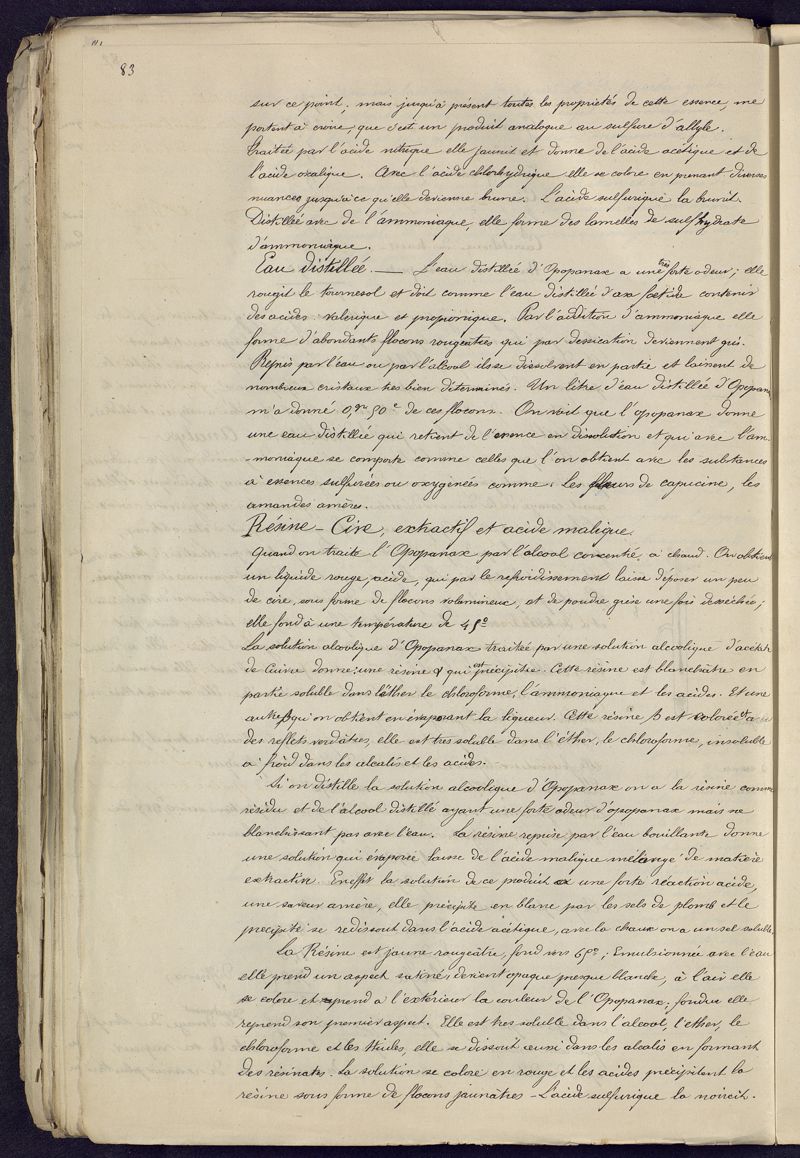 83
sur ce point; mais jusqu'à présent toutes les propriétés de cette essence, me
portent à croire, que c'est un produit analogue au sulfure d'allyle.
Traitée par l'acide nitrique elle jaunit et donne de l'acide acétique et de
l'acide oxalique. Avec l'acide chlorhydrique elle se colore en prenant diverses
nuances jusqu'à ce qu'elle devienne brune. L'acide sulfurique la brunit.
Distillée avec de l'ammoniaque, elle forme des lamelles de sulfhydrate
d'ammoniaque.
Eau distillée. — L'eau distillée d'Opopanax a une très forte odeur; elle
rougit le tournesol et doit comme l'eau distillée d'asa foetida contenir
des acides: valerique et propionique. Par l'addition d'ammoniaque elle
forme d'abondants flocons rougeatres qui par dessication deviennent gris.
Repris par l'eau ou par l'alcool ils se dissolvent en partie et laissent de
nombreux cristaux tres bien déterminés. Un litre d'eau distillée d'Opopanax
m'a donné 0,gr 50 c de ces flocons. On voit que l'opopanax donne
une eau distillée qui retient de l'essence en dissolution et qui avec l'am-
-moniaque se comporte comme celles que l'on obtient avec les substances
à essences sulfurées ou oxygénées comme: les fleurs de capucine, les
amandes amères.
Résine - Cire, extractif et acide malique.
Quand on traite l'Opopanax par l'alcool concentré, à chaud. On obtient
un liquide rouge, acide, qui par le refroidissement laisse déposer un peu
de cire, sous forme de flocons volumineux, et de poudre grise une fois desséchée;
elle fond à une température de 45°
La solution alcoolique d'Opopanax traitée par une solution alcoolique d'acétate
de Cuivre donne: une résine α qui est précipitée. Cette résine est blanchâtre en
partie soluble dans l'éther le chloroforme, l'ammoniaque et les acides. Et une
autre β qu'on obtient en évaporant la liqueur. Cette résine β est colorée et a
des reflets verdâtres, elle est tres soluble dans l'éther, le chloroforme, insoluble
à froid dans les alcalis et les acides.
Si on distille la solution alcoolique d'Opopanax on a la résine comme
résidu et de l'alcool distillé ayant une forte odeur d'opopanax mais ne
blanchissant pas avec l'eau. La résine reprise par l'eau bouillante donne
une solution qui évaporée laisse de l'acide malique mélangé de matière
extractive. En effet la solution de ce produit a une forte réaction acide,
une saveur amère, elle précipite en blanc par les sels de plomb et le
precipité se redissout dans l'acide acétique, avec la chaux on a un sel soluble.
La Résine est jaune rougeâtre, fond vers 65°; Emulsionnée avec l'eau
elle prend un aspect satiné, devient opaque presque blanche, à l'air elle
se colore et reprend à l'extérieur la couleur de l'Opopanax, fondue elle
reprend son premier aspect. Elle est tres soluble dans l'alcool, l'ether, le
chloroforme et les Huiles, elle se dissout aussi dans les alcalis en formant
des résinates. La solution se colore en rouge et les acides précipitent la
résine sous forme de flocons jaunâtres - L'acide sulfurique la noircit.